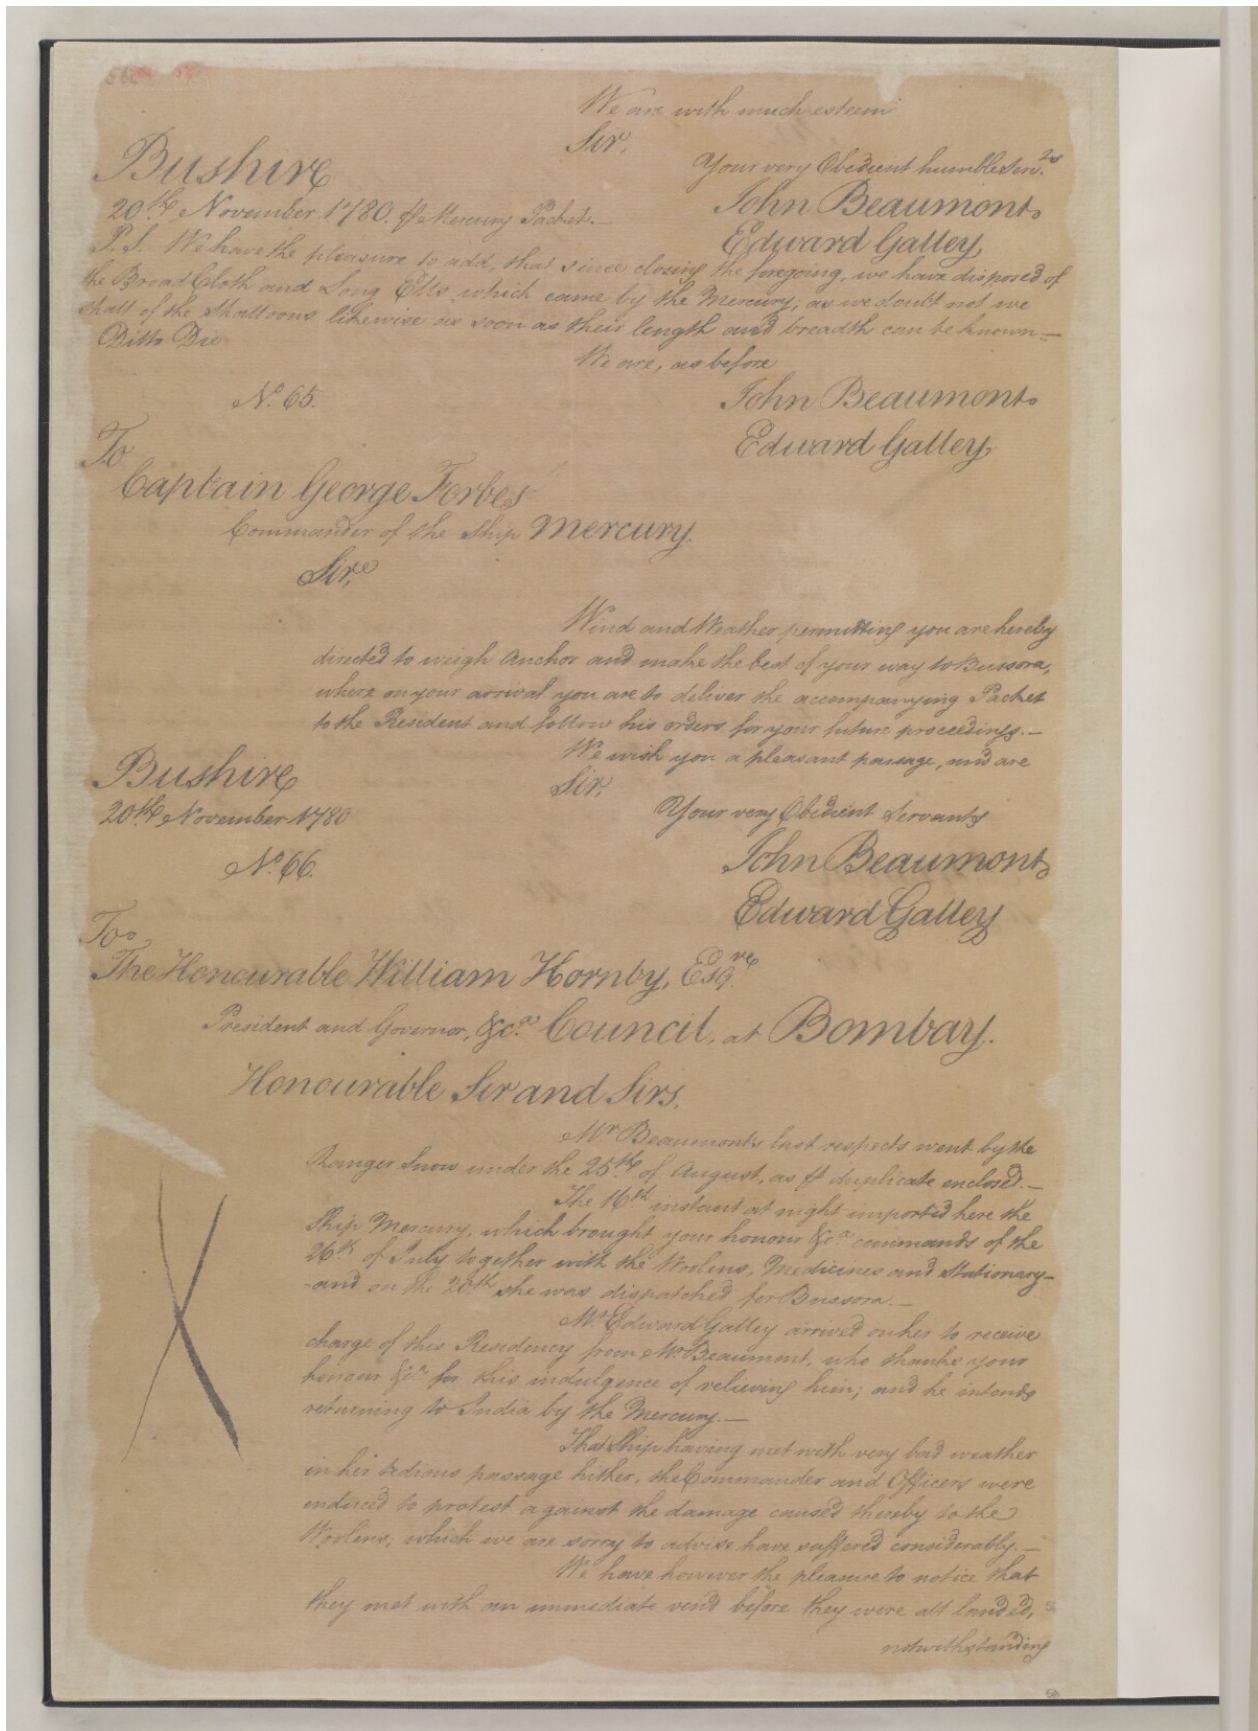 We are with much esteem
Sir,
Your very Obedient humble Serv.ts
Bushire
John Beaumont
20th November 1780. P Mercury Packet.—
Edward Galley,
P.S. We have the pleasure to add, that since closing the foregoing, we have disposed of
the Broad Cloth and Long Ells which came by the Mercury; as we doubt not we
shall of the Shalloons likewise as soon as their length and breadth can be known—
Ditto Die
We are, as before
John Beaumont
No. 65.
Edward Galley,
To
Captain George Forbes
Commander of the Ship Mercury.
Sir,
Wind and Weather permitting you are hereby
directed to weigh Anchor and make the best of your way to Bussora,
where on your arrival you are to deliver the accompanying Packet
to the Resident and follow his orders for your future proceedings.—
We wish you a pleasant passage, and are
Bushire
Sir,
20th November 1780
Your very Obedient Servants
No. 66.
John Beaumont
Edward Galley
To
The Honourable William Hornby, Esqre.
President and Governor, &ca. Council, at Bombay.
Honourable Sir and Sirs,
Mr Beaumonts last respects went by the
Ranger Snow under the 25th of August, as P duplicate enclosed.—
The 16th instant at night imported here the
Ship Mercury, which brought your honour &ca commands of the
26th of July together with the Woolens, Medicines and Stationary—
and on the 20th she was dispatched for Bussora.—
Mr Edward Galley arrived on her to receive
charge of this Residency from Mr Beaumont, who thanks your
honour &ca for this indulgence of relieving him; and he intends
returning to India by the Mercury.—
That Ship having met with very bad weather
in her tedious passage hither, the Commander and Officers were
induced to protest against the damage caused thereby to the
Woolens; which we are sorry to advise have suffered considerably.—
We have however the pleasure to notice that
they met with an immediate vend before they were all landed,
notwithstanding